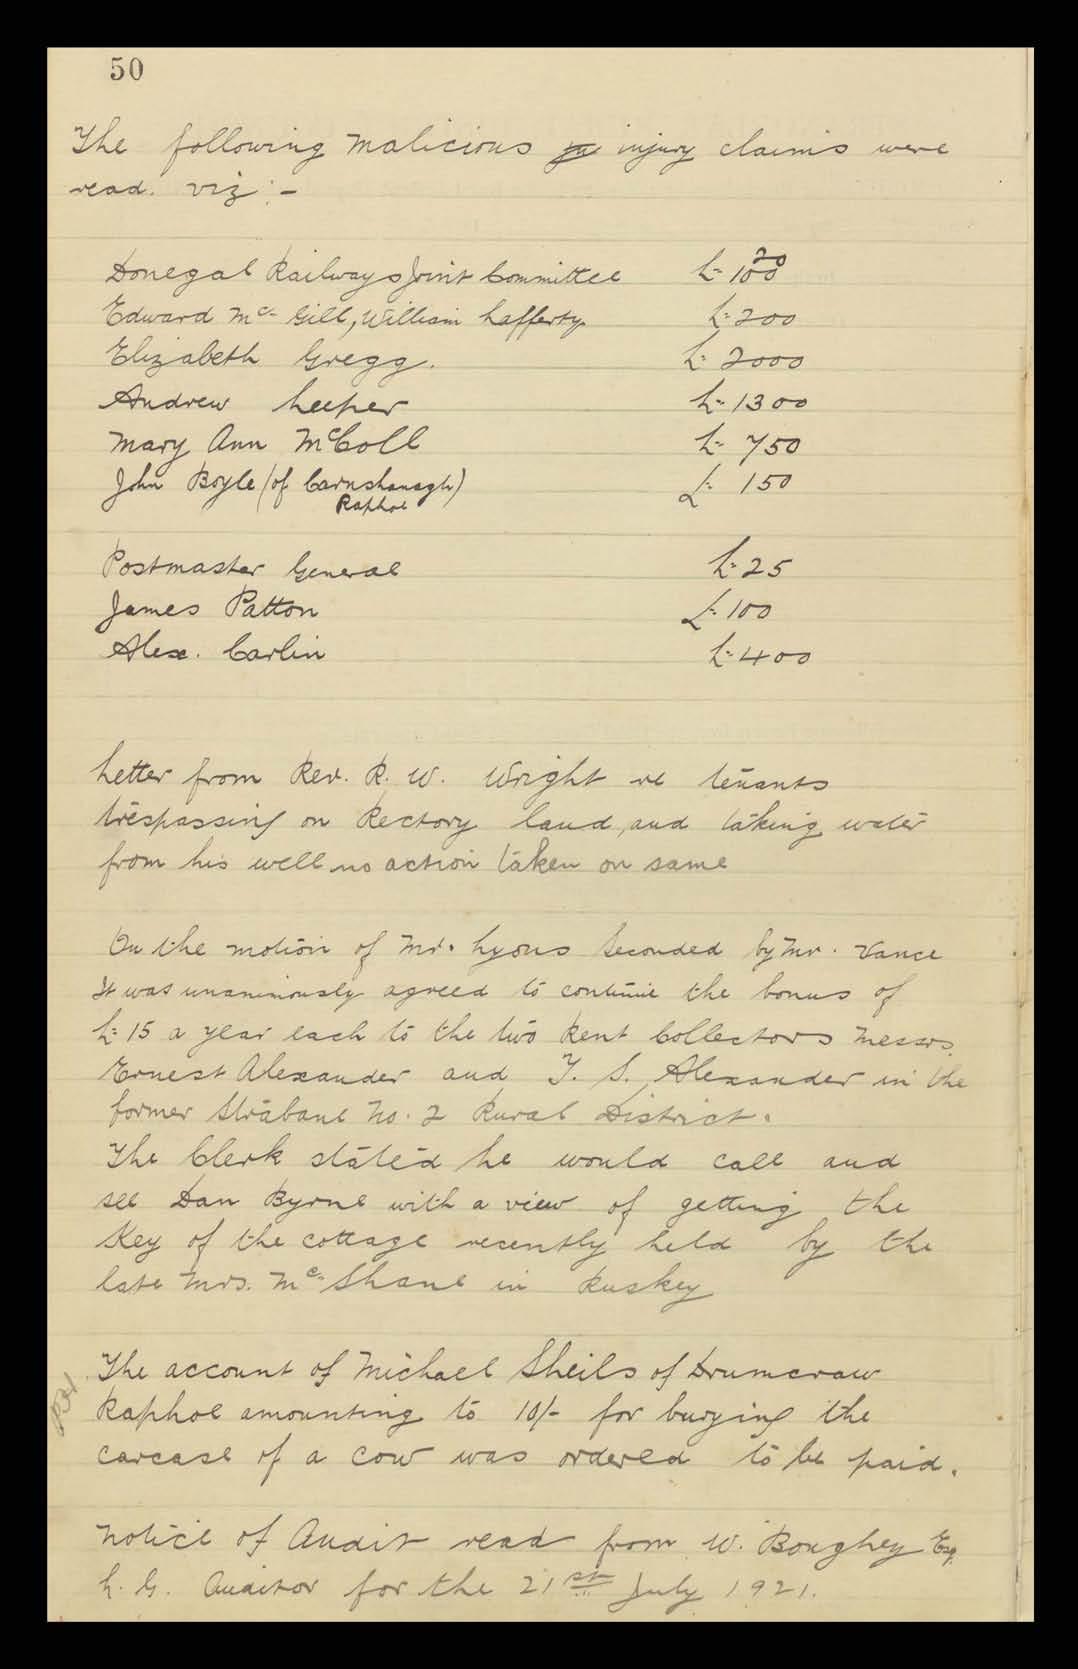 50
The following malicious injury claims were
read. viz:-
Donegal Railways Joint Committee £ 120
Edward Mc Gill, William Lafferty £ 200
Elizabeth Gregg. £ 2000
Andrew Leeper £ 1300
Mary Ann McColl £ 750
John Boyle (of Carnshanagh) £ 150
Raphoe
Postmaster General £ 25
James Patton £ 100
Alex. Carlin £ 400
Letter from Rev. R. W. Wright re tenants
trespassing on Rectory land, and taking water
from his well no action taken on same
On the motion of Mr. Lyons seconded by Mr. Vance
It was unanimously agreed to continue the bonus of
£ 15 a year each to the two Rent Collectors Messrs.
Ernest Alexander and T. S. Alexander in the
former Strabane No. 2 Rural District.
The Clerk stated he would call and
see Dan Byrne with a view of getting the
Key of the cottage recently held by the
late Mrs. Mc Shane in Ruskey
The account of Michael Sheils of Drumcraw
Raphoe amounting to 10/- for burying the
carcase of a cow was ordered to be paid.
Notice of Audit read from W. Boughey Esq.
L. G. Auditor for the 21st July 1921.